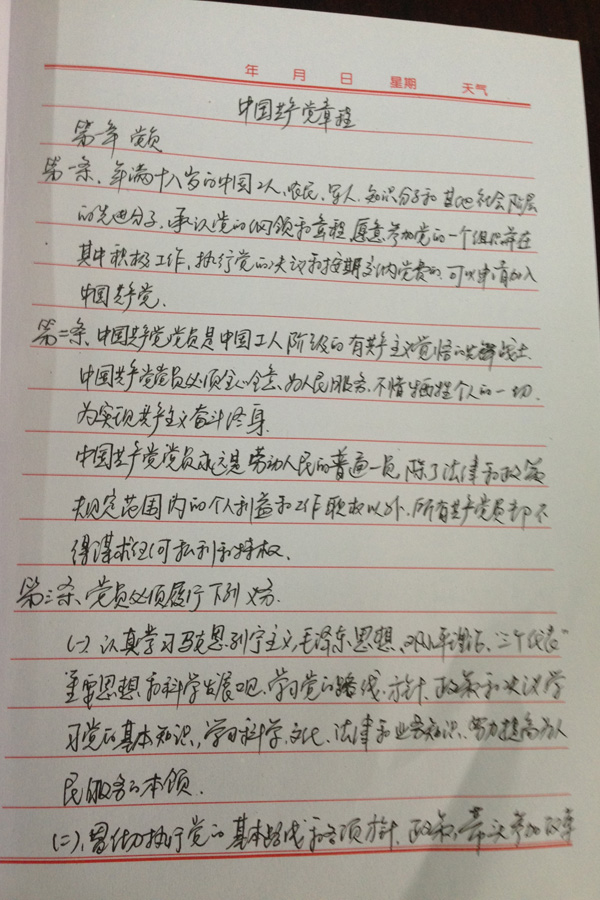 年 月 日 星期 天气
中国共产党章程
第一章 党员
第一条、年满十八岁的中国工人、农民、军人、知识分子和其他社会阶层
的先进分子,承认党的纲领和章程,愿意参加党的一个组织并在
其中积极工作、执行党的决议和按期交纳党费的,可以申请加入
中国共产党.
第二条、中国共产党党员是中国工人阶级的有共产主义觉悟的先锋战士.
中国共产党党员必须全心全意为人民服务、不惜牺牲个人的一切.
为实现共产主义奋斗终身.
中国共产党党员永远是劳动人民的普通一员,除了法律和政策
规定范围内的个人利益和工作职权以外,所有共产党员都不
得谋求任何私利和特权.
第三条、党员必须履行下列义务.
(一)、认真学习马克思列宁主义,毛泽东思想、邓小平理论、“三个代表”
重要思想和科学发展观、学习党的路线、方针、政策和决议,学
习党的基本知识,学习科学、文化、法律和业务知识、努力提高为人
民服务的本领.
(二)、贯彻执行党的基本路线和各项方针、政策,带头参加改革